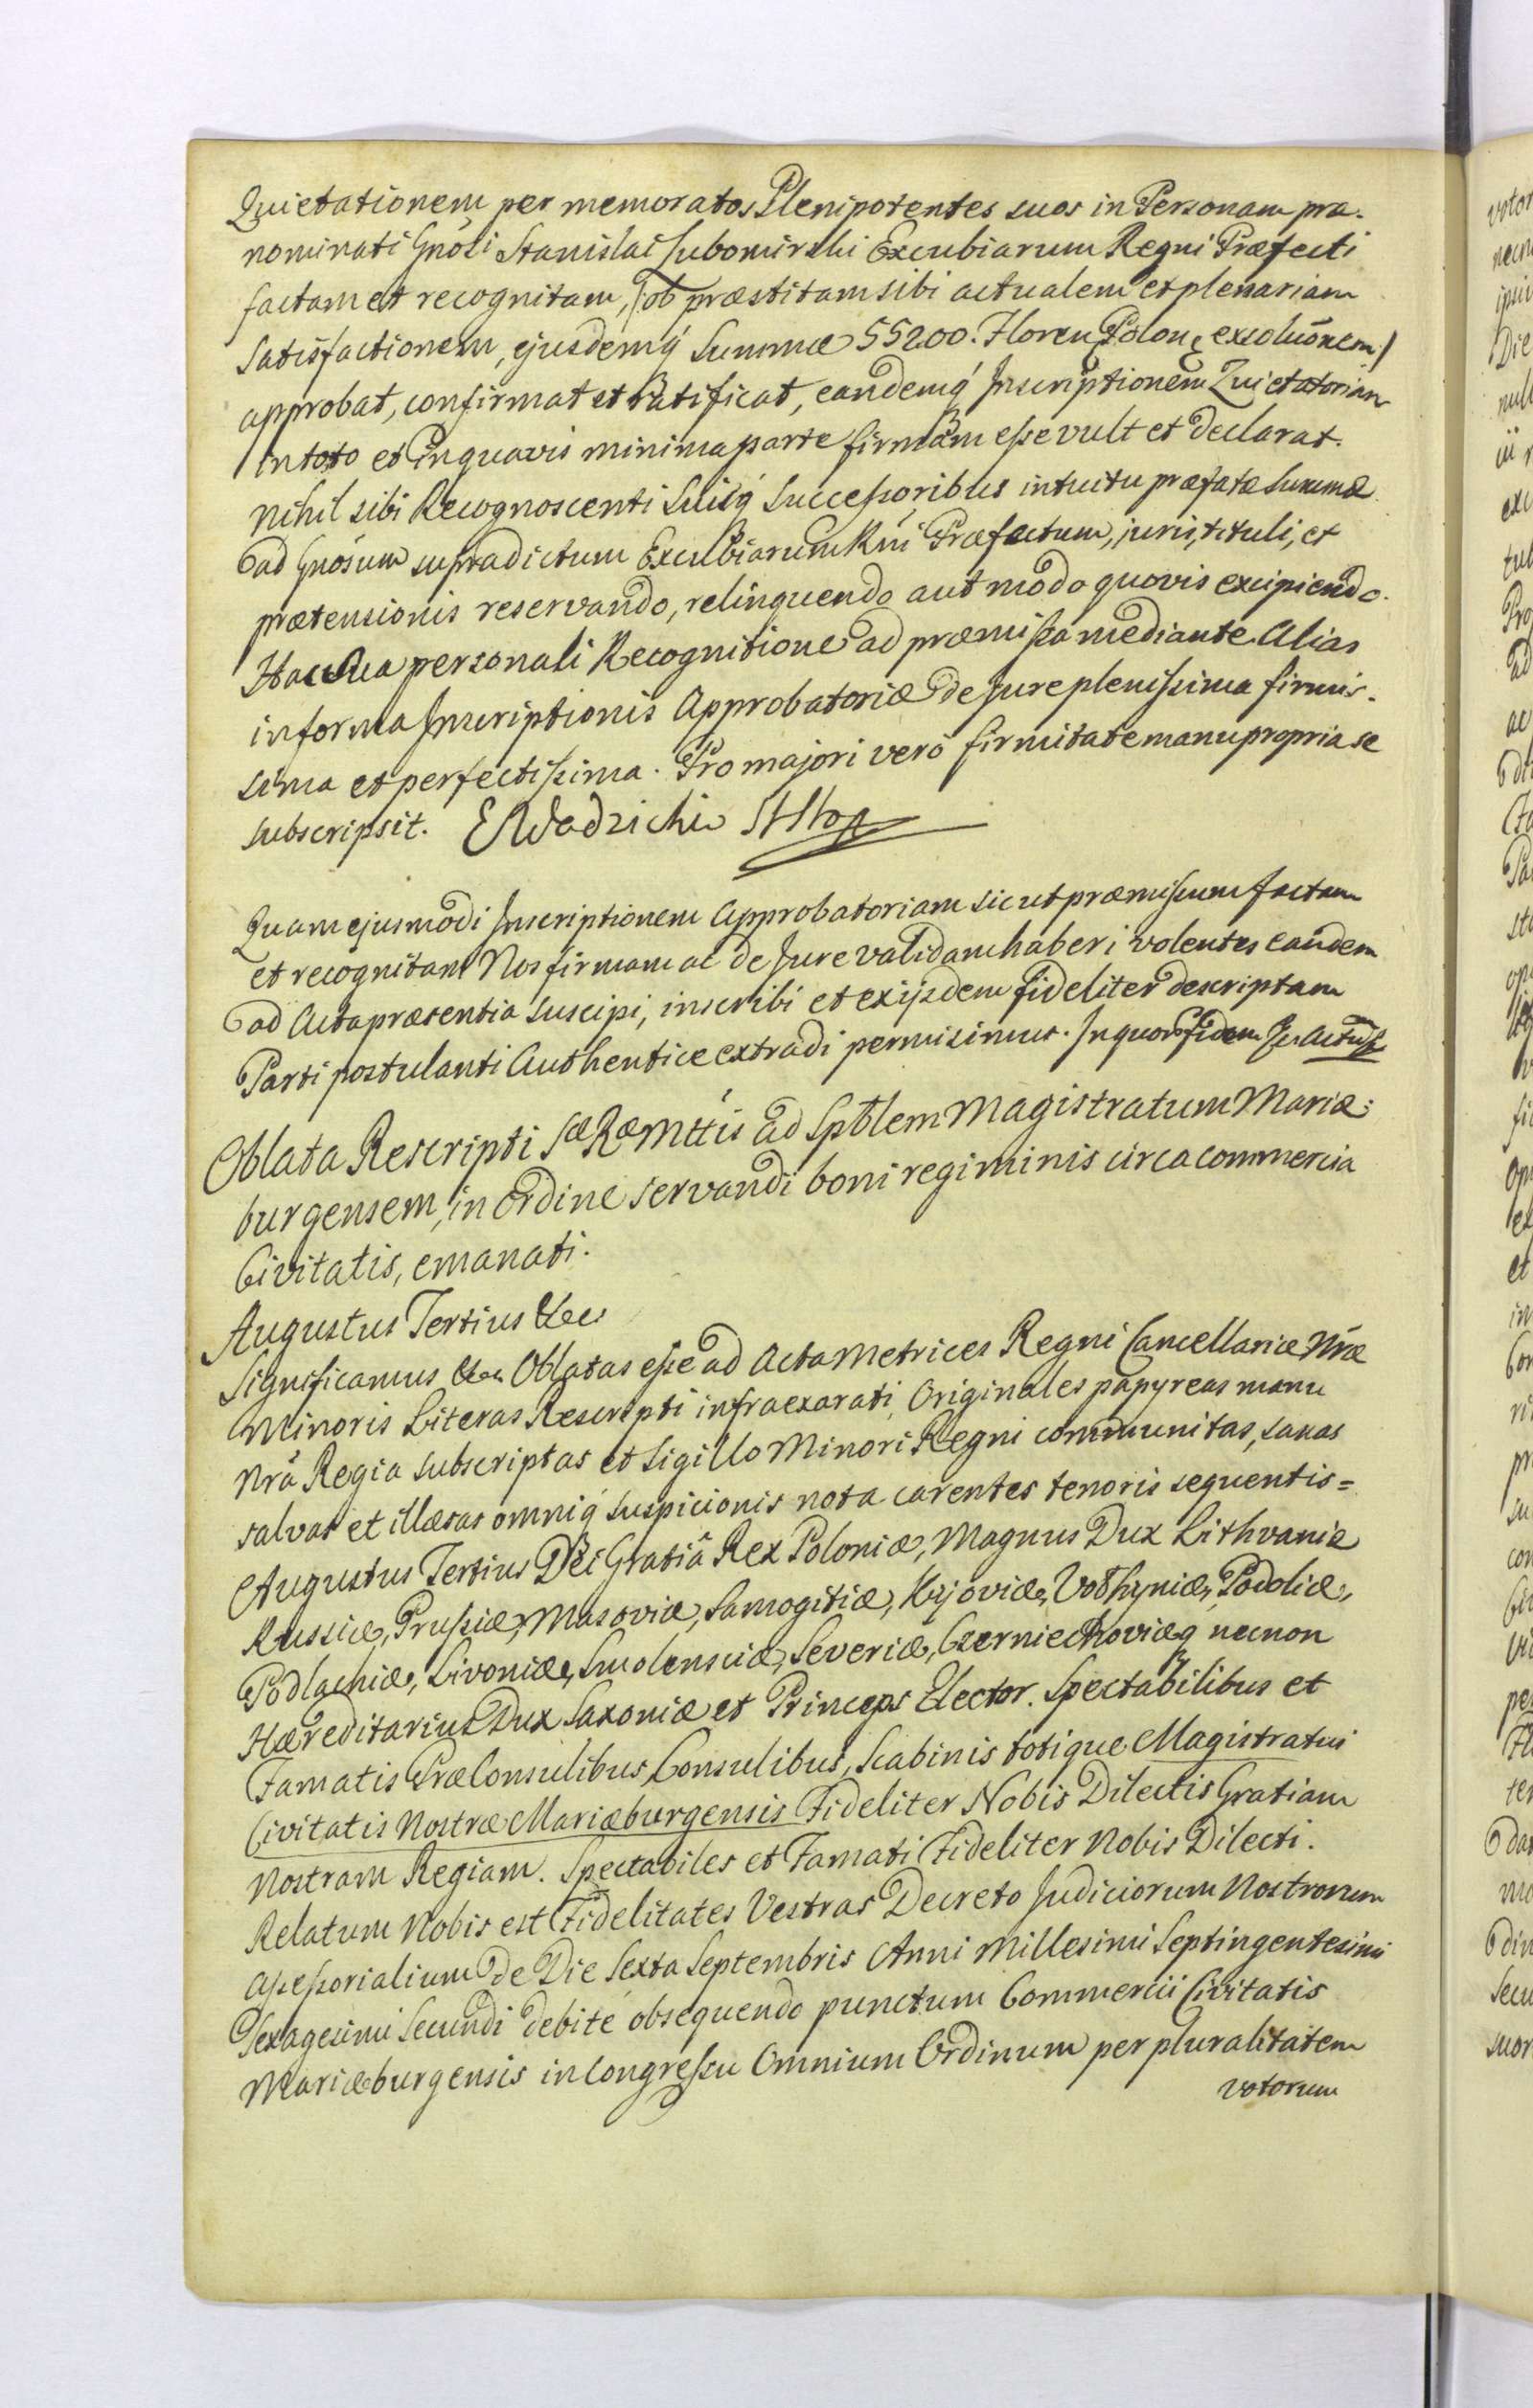 Quietationem per memoratos Plenipotentes suos in Personam præ-
nominati Gnōsi Stanislai Lubomirski Excubiarum Regni Præfecti
factam et recognitam, /ob præstitam sibi actualem et plenariam
Satisfactionem, ejusdemq́ Summæ 55200. Floren Polon exolutōnem/
approbat, confirmat et ratificat, eandemq́ Inscriptionem Quietatoriam
in toto et in quavis minima parte firmam eſse vult et declarat.
nihil sibi Recognoscenti Suisq́ Succeſsoribus intuitu præfatæ Summæ
ad Gnōsum supradictum Excubiarum Rni Præfectum, juris, tituli, et
prætensionis reservando, relinquendo aut modo quovis excipiendo.
Hac sua personali Recognitione ad præmiſsa mediante. Alias
in forma Inscriptionis Approbatoriæ de jure pleniſsima firmis-
sima et perfectiſsima. Pro majori verò firmitate manu propria se
subscripsit.
Quam ejusmodi Inscriptionem Approbatoriam sic ut præmiſsum factam
et recognitam Nos firmam ac de Jure validam haberi volentes eandem
ad Acta præsentia suscipi, inscribi et ex ijsdem fideliter descriptam
Parti postulanti Authentice extradi permisimus. In quor fidem
Oblata Rescripti Sæ Ræ Mttis ad Spblem Magistratum Mariæ-
burgensem, in ordine servandi boni regiminis circa commercia
Civitatis, emanati.
Augustus Tertius &c
Significamus &c Oblatas eſse ad Acta Metrices Regni Cancellariæ Nræ
Minoris Literas Rescripti infra exarati, Originales papyreas manu
Nrâ Regia subscriptas et Sigillo Minori Regni communitas, sanas
salvas et illæsas omniq́ suspicionis nota carentes tenoris sequentis=
Augustus Tertius Dei Gratiâ Rex Poloniæ, Magnus Dux Lithvaniæ
Russiæ, Pruſsiæ, Masoviæ, Samogitiæ, Kyjoviæ, Volhyniæ, Podoliæ,
Podlachiæ, Livoniæ, Smolensciæ, Severiæ, Czerniechoviæq́ necnon
Hæreditarius Dux Saxoniæ et Princeps Elector. Spectabilibus et
Famatis PræConsulibus, Consulibus, Scabinis totique Magistratui
Civitatis Nostræ Mariæburgensis Fideliter Nobis Dilectis Gratiam
Nostram Regiam. Spectabiles et Famati Fideliter Nobis Dilecti.
Relatum Nobis est Fidelitates Vestras Decreto Judiciorum Nostrorum
Aſseſsorialium de Die Sexta Septembris Anni Millesimi Septingentesimi
Sexagesimi Secundi debité obsequendo punctum Commercii Civitatis
Mariæburgensis in Congreſsu Omnium Ordinum per pluralitatem
votorum